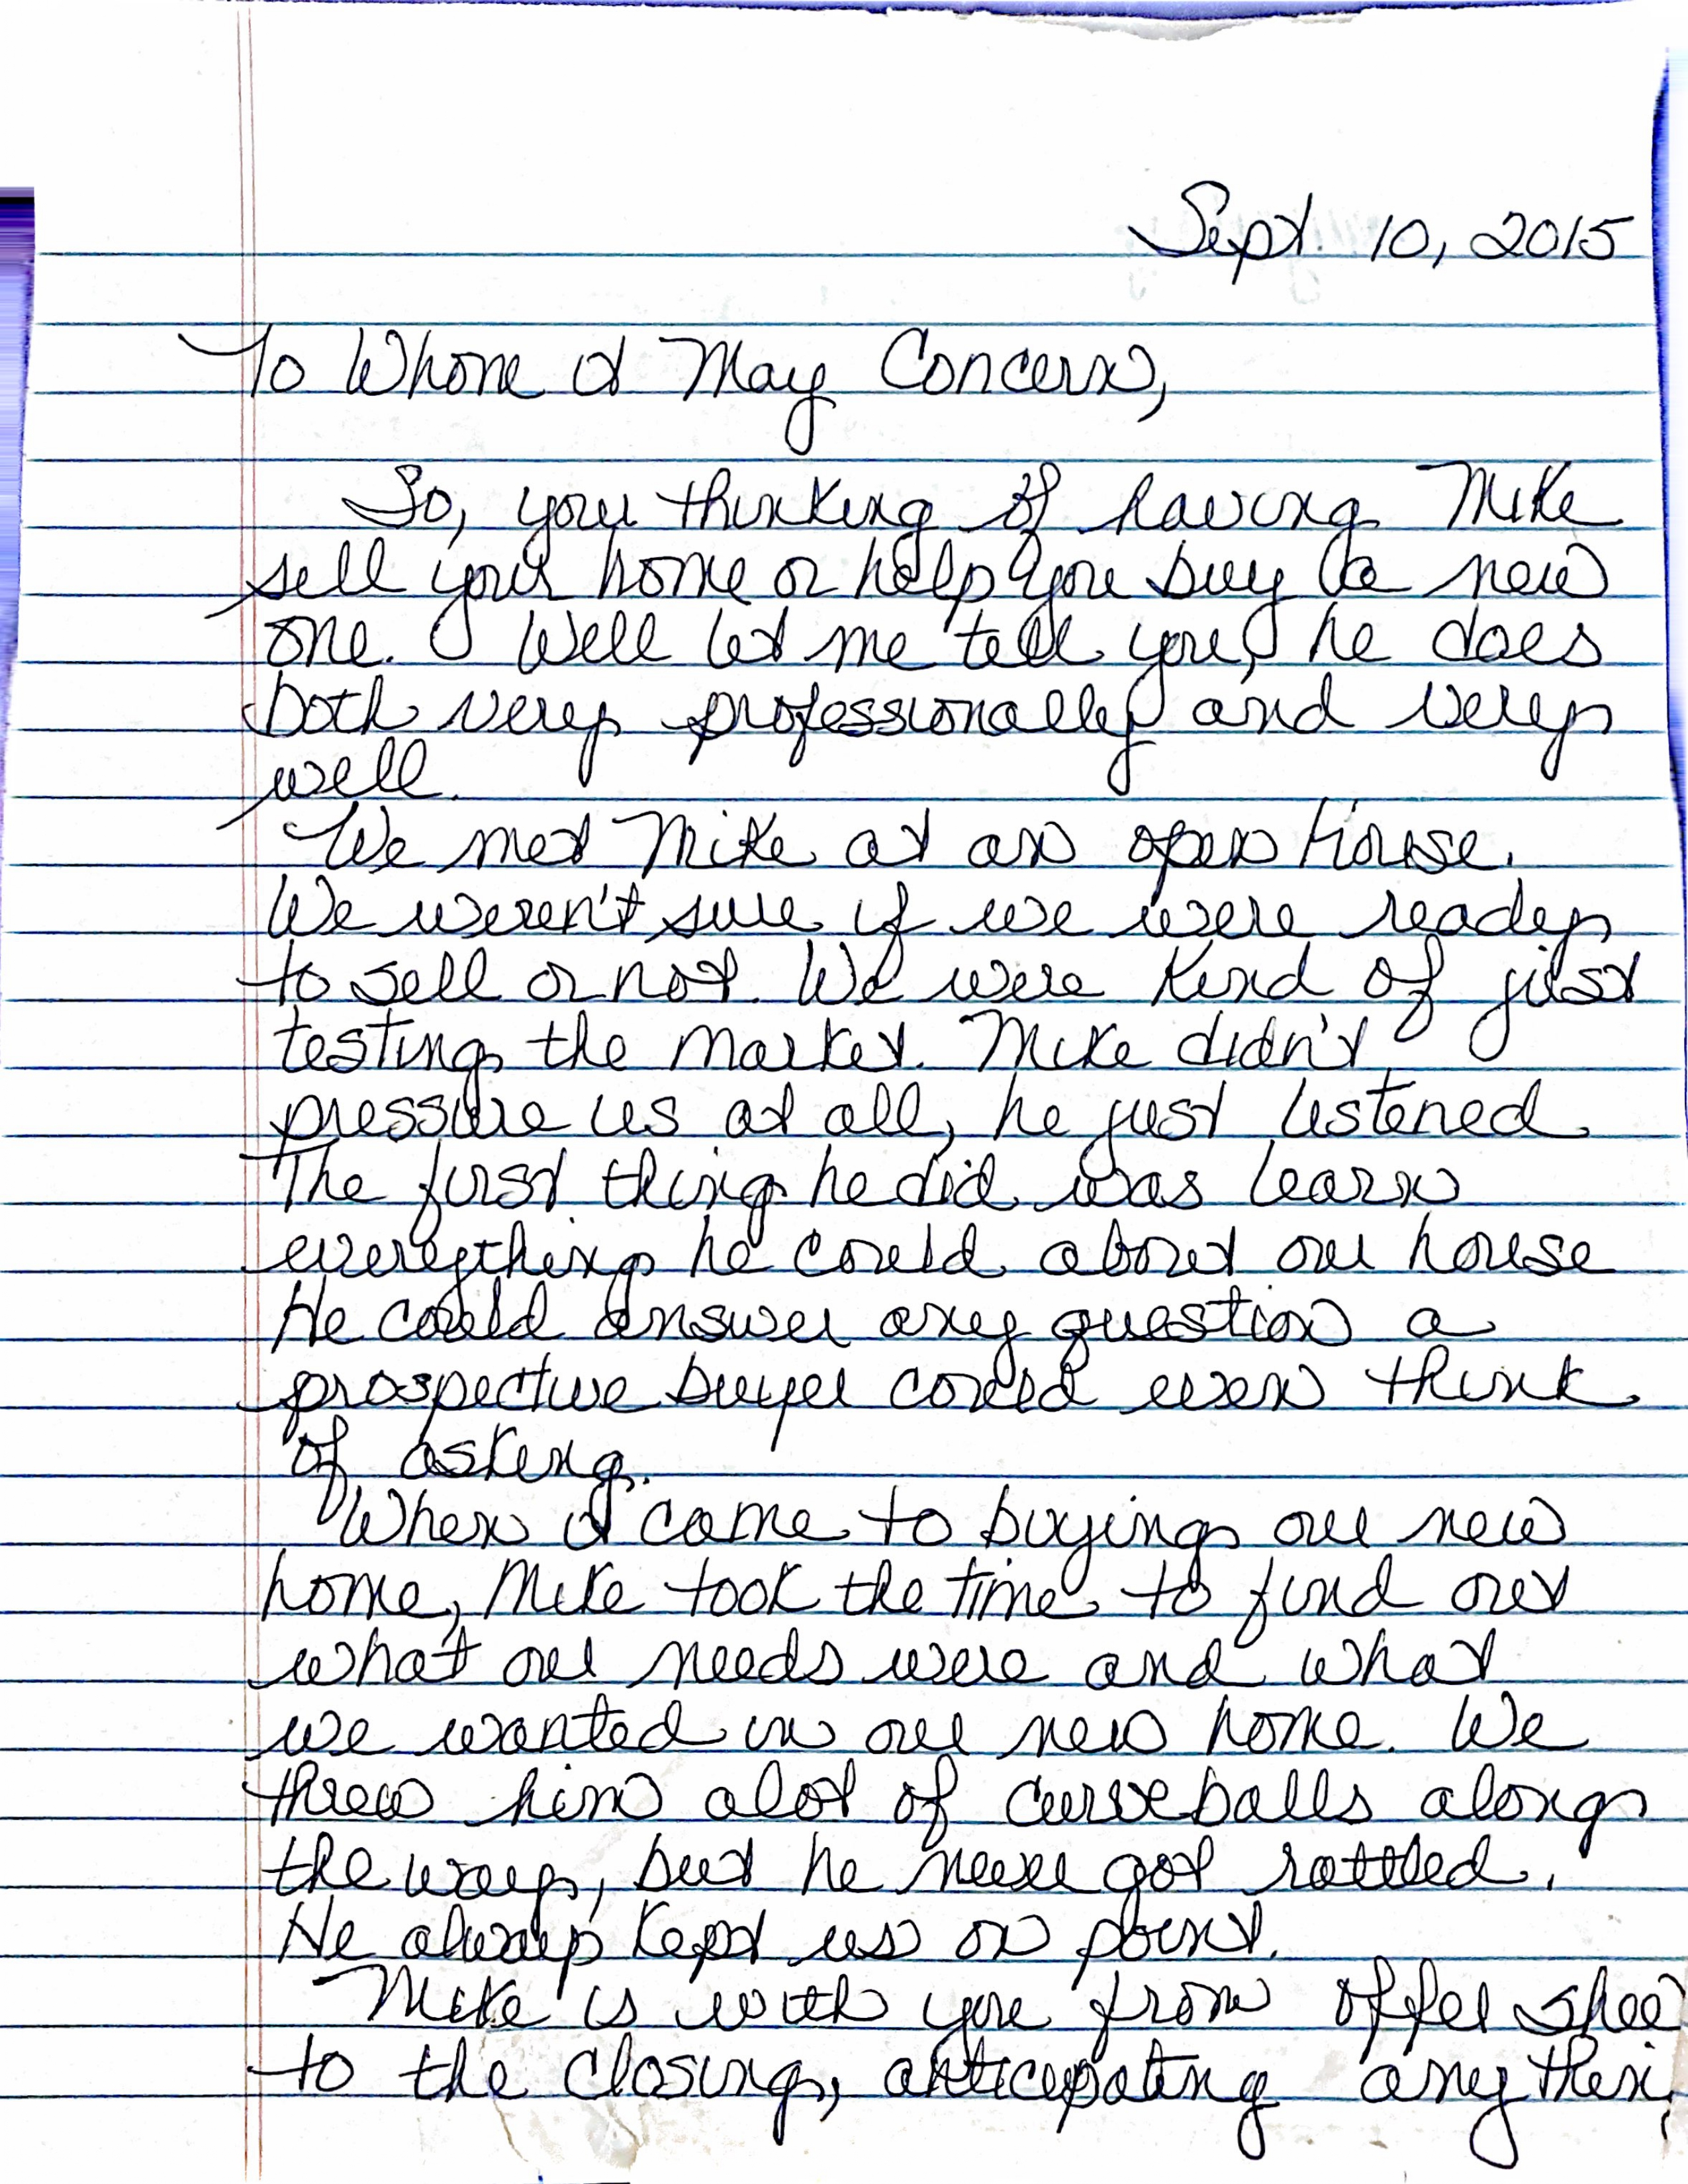 Sept. 10, 2015
To Whom it May Concern,
So, your thinking of having Mike
sell your home or help you buy a new
one. Well let me tell you, he does
both very professionally and very
well.
We met Mike at an open house.
We weren't sure if we were ready
to sell or not. We were kind of just
testing the market. Mike didn't
pressure us at all, he just listened.
The first thing he did was learn
everything he could about our house
He could answer any question a
prospective buyer could even think
of asking.
When it came to buying our new
home, Mike took the time to find out
what our needs were and what
we wanted in our new home. We
threw him alot of curveballs along
the way, but he never got rattled.
He always kept us on point.
Mike is with you from offer shee
to the closing, anticipating any thin